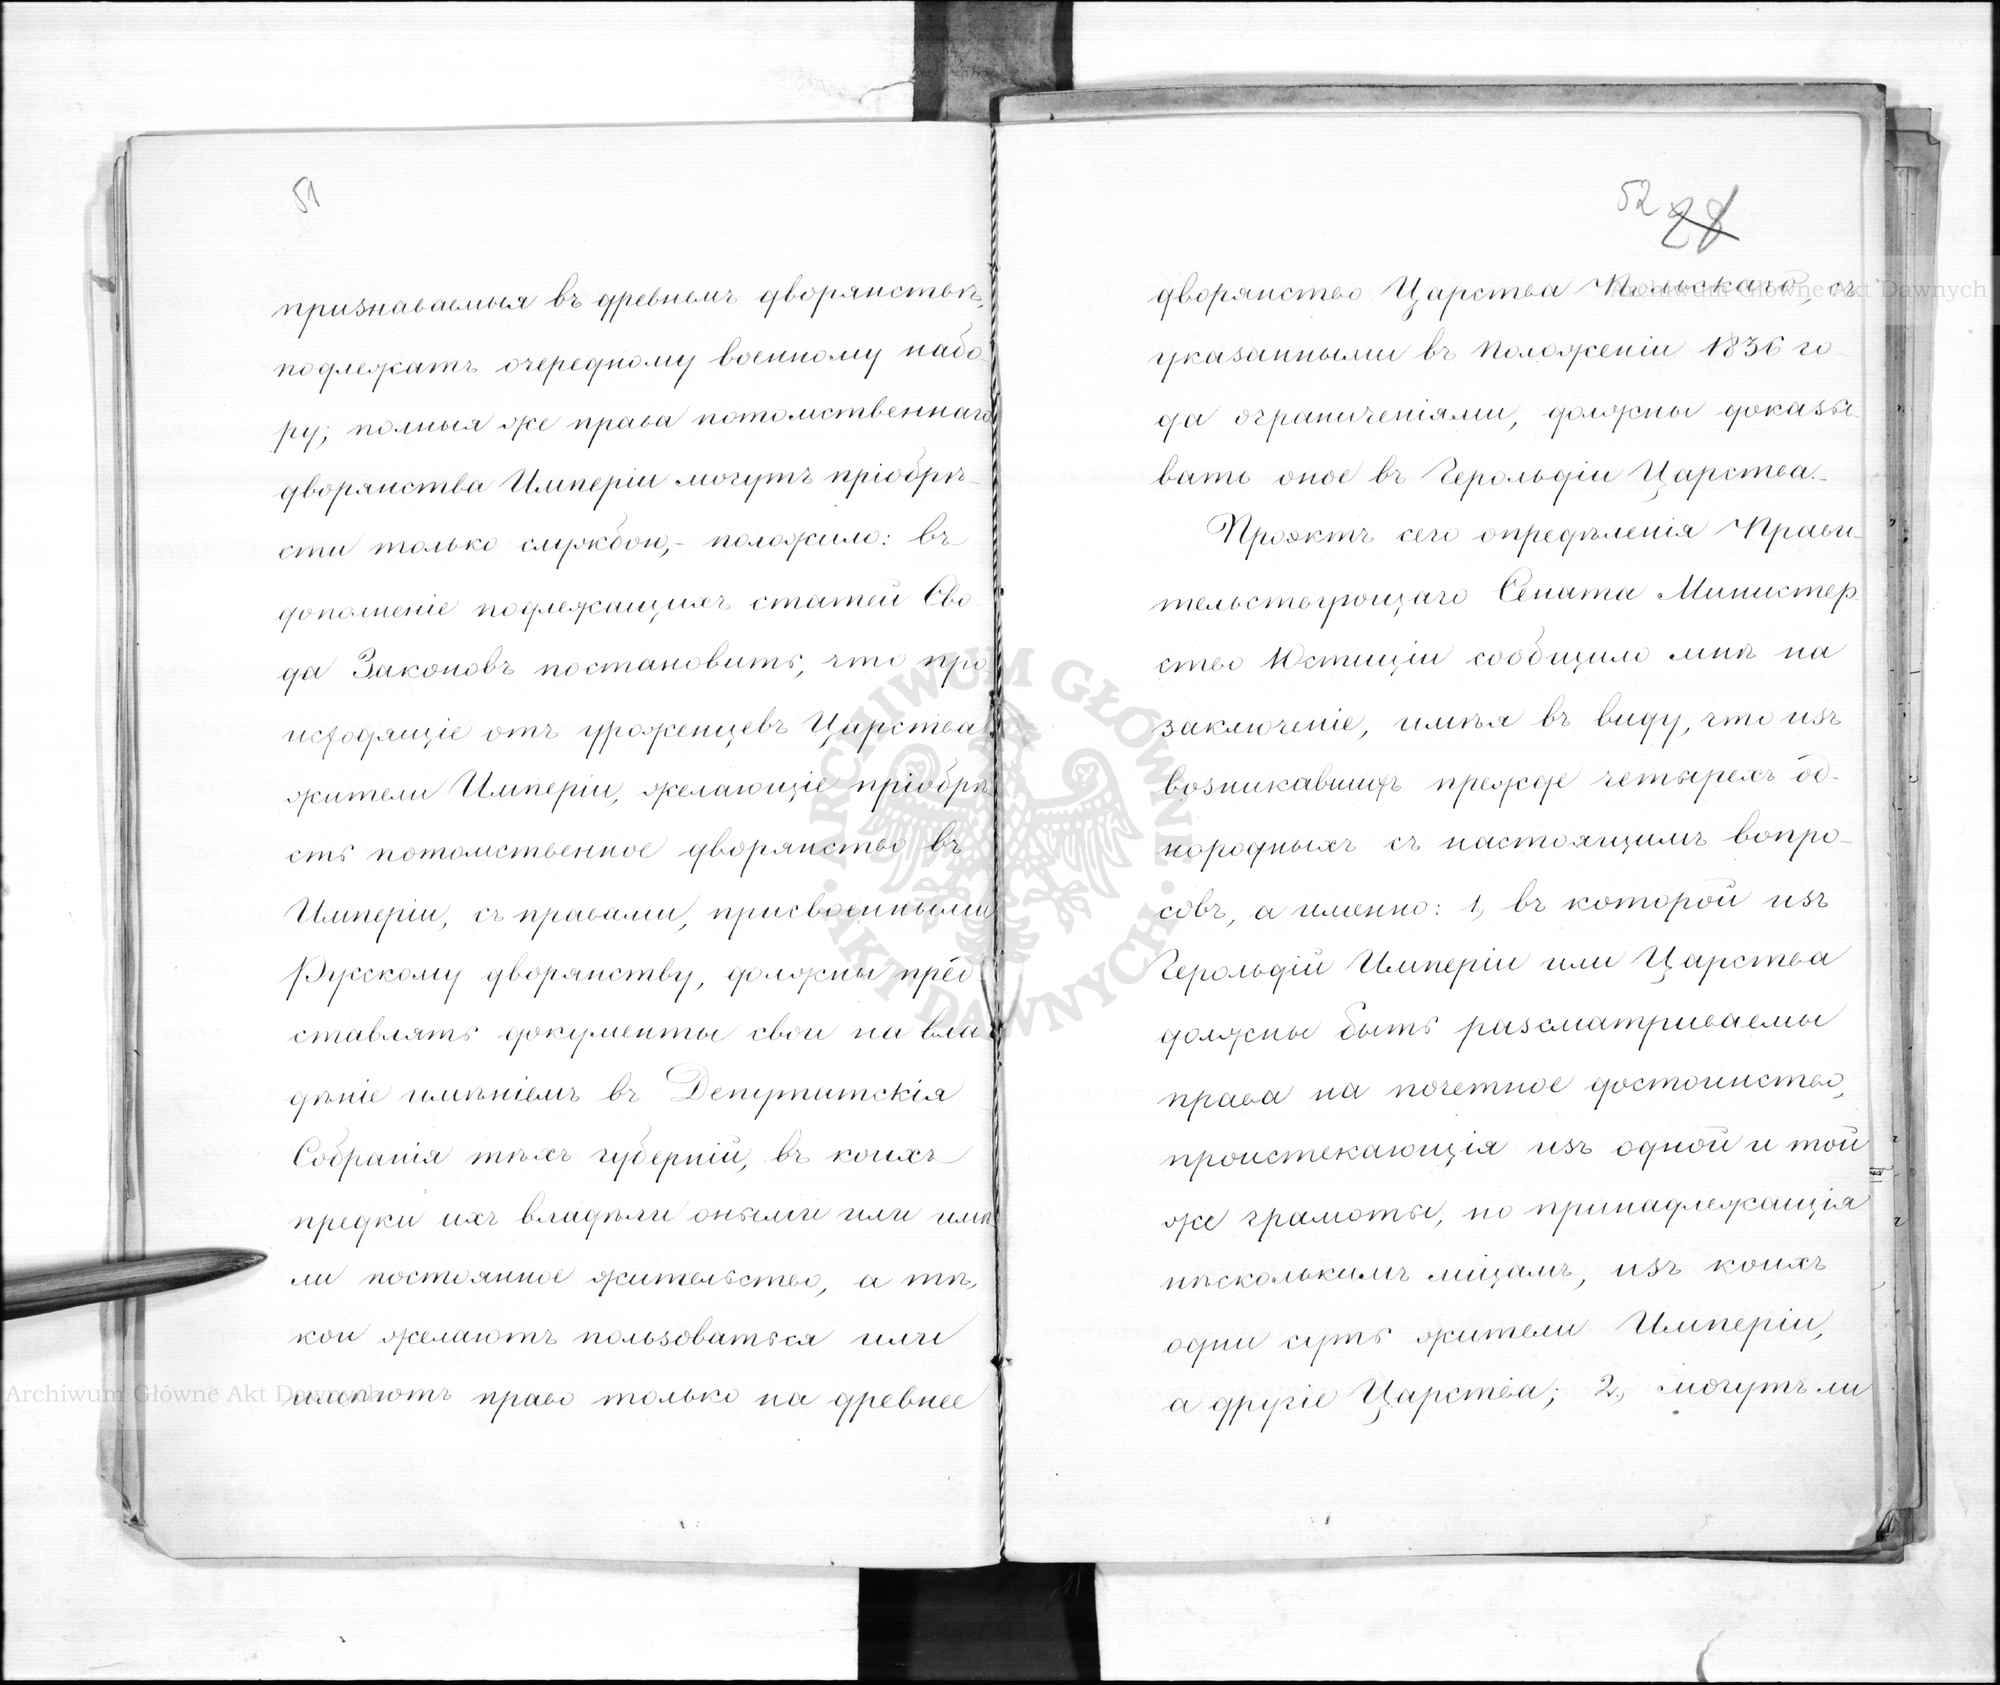 51
признаваемыя въ древнемъ дворянствѣ,
подлежатъ очередному военному набо-
ру; полныя же права потомственнаго
дворянства Имперіи могутъ пріобрѣ-
сти только службою,- положило: въ
дополненіе подлежащихъ статей Сво-
да Законовъ постановить, что про-
исходящіе отъ уроженцевъ Царства
жители Имперіи, желающіе пріобрѣ-
сть потомственное дворянство въ
Имперіи, съ правами, присвоенными
Русскому дворянству, должны пред-
ставлять документы свои на вла-
дѣніе имѣніемъ въ Депутатскія
Собранія тѣхъ губерній, въ коихъ
предки ихъ владѣли оными или имѣ-
ли постоянное жительство, а тѣ,
кои желаютъ пользоваться или
имѣютъ право только на древнее
52 28
дворянство Царства Польскаго, съ
указанными въ Положеніи 1836 го-
да ограниченіями, должны доказы-
вать оное въ Герольдіи Царства.-
Проэктъ сего опредѣленія Прави-
тельствующаго Сената Министер-
ство Юстиціи сообщило мнѣ на
заключеніе, имѣя въ виду, что изъ
возникавшихъ прежде четырехъ од-
нородныхъ съ настоящимъ вопро-
совъ, а именно: 1, въ которой изъ
Герольдій Имперіи или Царства
должны быть разсматриваемы
права на почетное достоинство,
проистекающія изъ одной и той
же грамоты, но принадлежащія
нѣсколькимъ лицамъ, изъ коихъ
одни суть жители Имперіи,
а другіе Царства; 2, могутъ ли
ARCHIWUM GŁÓWNE · AKT DAWNYCH ·
Archiwum Główne Akt Dawnych
Archiwum Główne Akt Dawnych